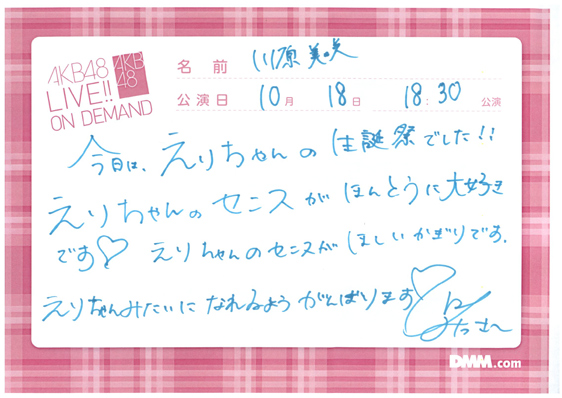 AKB48
LIVE!!
ON DEMAND
AKB
48
名前 川原美咲
公演日 10月 18日 18:30 公演
今日は、えりちゃんの生誕祭でした!!
えりちゃんのセニスがほんとうに大好き
です♡ えりちゃんのセニスがほしいかぎりです。
えりちゃんみたいになれるようがんばります♡
DMM.com